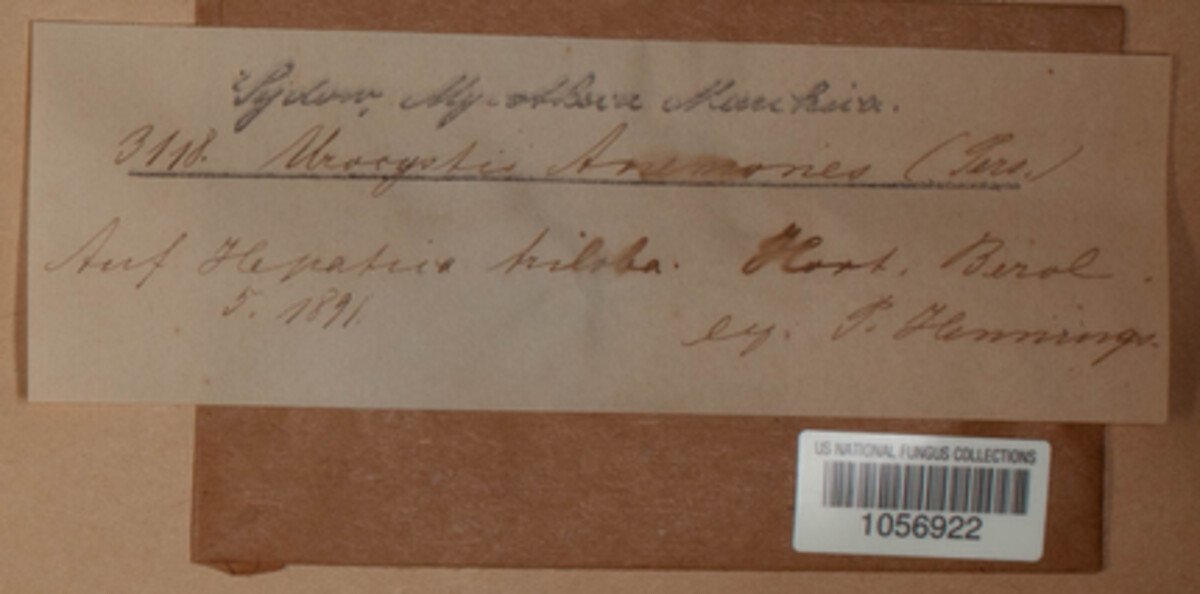 Sydow, Mycotheca Marchica.
3118. Urocystis Anemones (Pers.)
Auf Hepatica triloba. Hort. Berol.
5. 1891. leg. P. Hennings.
US NATIONAL FUNGUS COLLECTIONS
1056922